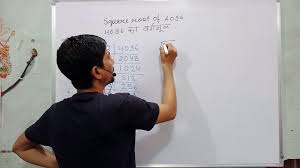 Square root of 4096
4096 का वर्गमूल
2 4096
2048
1024
512
256